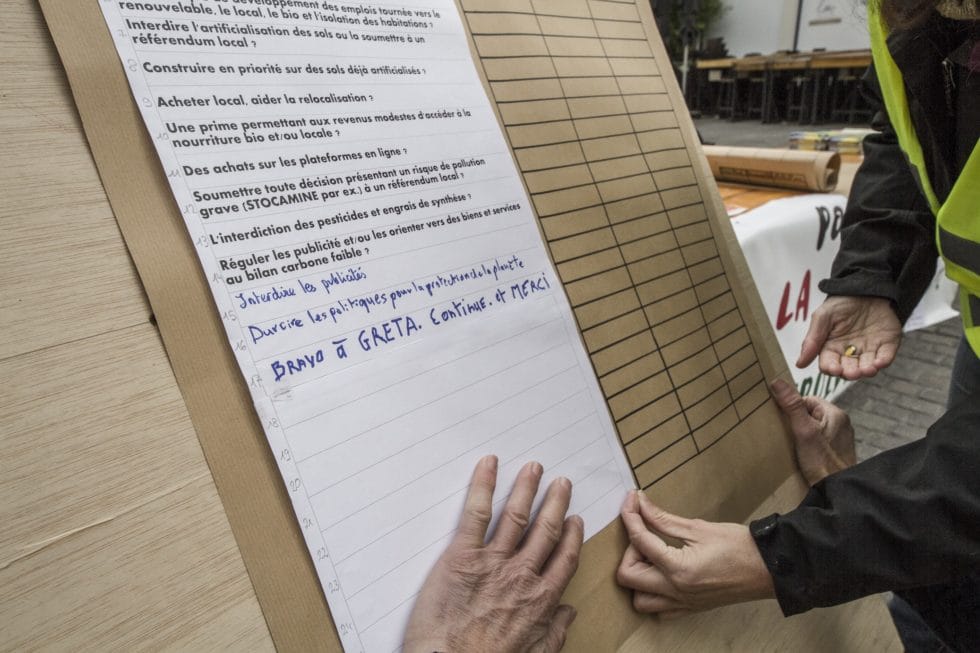 développement des emplois tournée vers le
renouvelable, le local, le bio et l'isolation des habitations ?
7 Interdire l'artificialisation des sols ou la soumettre à un
référendum local ?
8 Construire en priorité sur des sols déjà artificialisés ?
9 Acheter local, aider la relocalisation ?
10 Une prime permettant aux revenus modestes d'accéder à la
nourriture bio et/ou locale ?
11 Des achats sur les plateformes en ligne ?
12 Soumettre toute décision présentant un risque de pollution
grave (STOCAMINE par ex.) à un référendum local ?
13 L'interdiction des pesticides et engrais de synthèse ?
14 Réguler les publicité et/ou les orienter vers des biens et services
au bilan carbone faible ?
15 Interdire les publicités
16 Durcire les politiques pour la protection de la planete
17 BRAVO à GRETA. Continue. et MERCI
18
19
20
21
22
23
24
LA